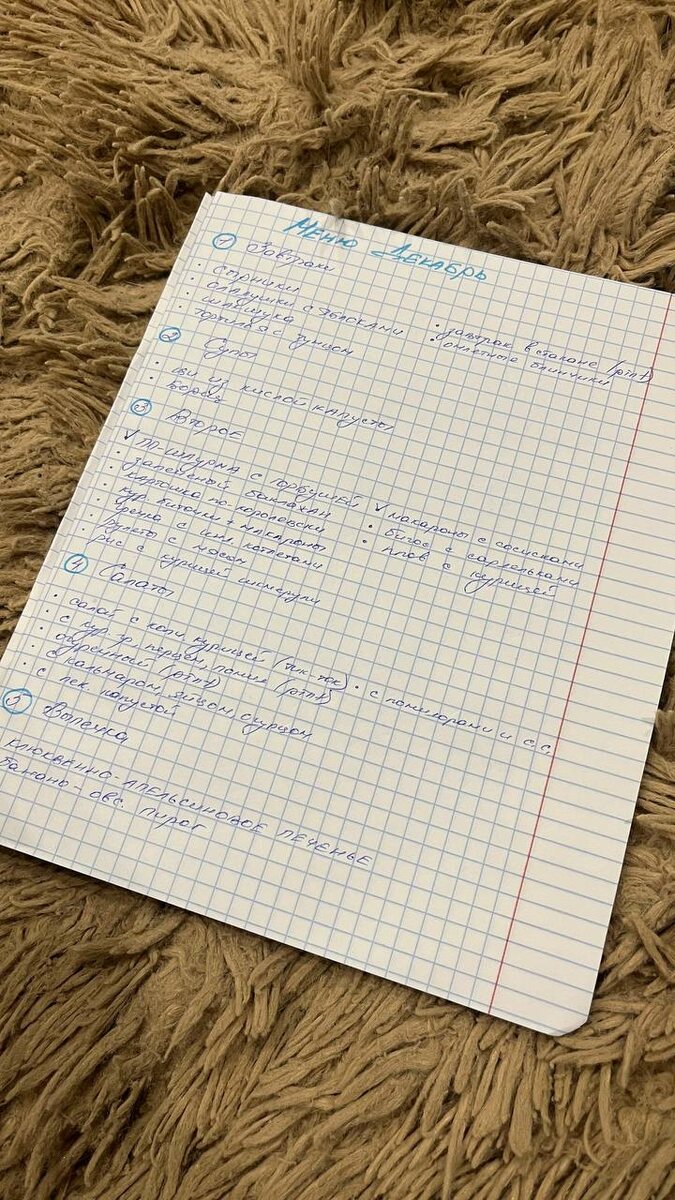 Меню Декабрь
① Завтраки
· сырники
· оладушки с яблоками
· шакшука
· тортилья с тунцом
· завтрак в стакане (pint)
· омлетные блинчики
② Супы
· щи из кислой капусты
· Борщ
③ Второе
✓ П-шпурма с горбушей
· запечёный баклажан
· картошка по-королевски
· кур. биточки + макароны
· гречка с инд. котлетами
· рулеты с мясом
· рис с курицей шкмерули
✓ макароны с сосисками
· бигос с сардельками
· плов с курицей
④ Салаты
· салат с копч. курицей (тик-ток)
· с кур. ф. перцем, помид. (pint)
· огуречный (pint)
· с кальмаром, яйцом, огурцом
· с пек. капустой
· с помидорами и с.с.
⑤ Выпечка
клюквенно-апельсиновое печенье
банано-овс. пирог